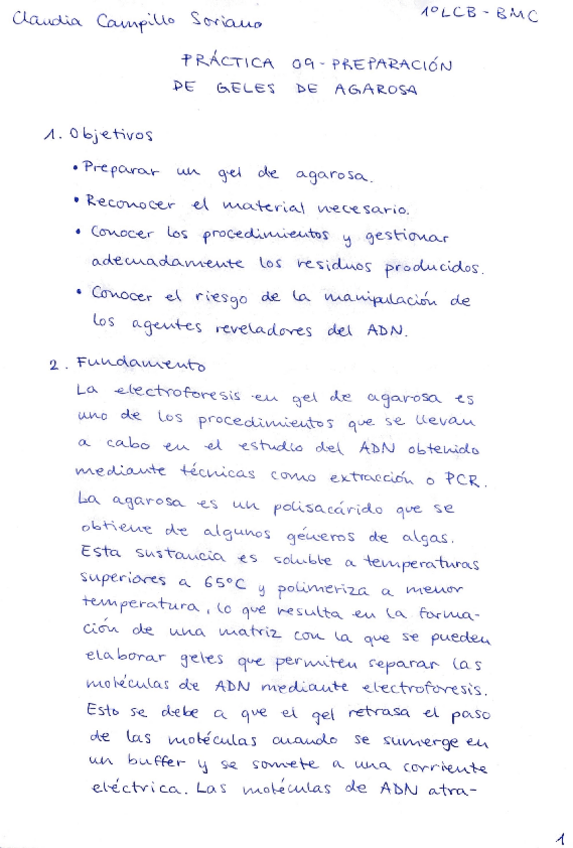 Claudia Campillo Soriano
1º LCB - BMC
PRÁCTICA 09 - PREPARACIÓN
DE GELES DE AGAROSA
1. Objetivos
• Preparar un gel de agarosa.
• Reconocer el material necesario.
• Conocer los procedimientos y gestionar
adecuadamente los residuos producidos.
• Conocer el riesgo de la manipulación de
los agentes reveladores del ADN.
2. Fundamento
La electroforesis en gel de agarosa es
uno de los procedimientos que se llevan
a cabo en el estudio del ADN obtenido
mediante técnicas como extracción o PCR.
La agarosa es un polisacárido que se
obtiene de algunos géneros de algas.
Esta sustancia es soluble a temperaturas
superiores a 65ºC y polimeriza a menor
temperatura, lo que resulta en la forma-
ción de una matriz con la que se pueden
elaborar geles que permiten separar las
moléculas de ADN mediante electroforesis.
Esto se debe a que el gel retrasa el paso
de las moléculas cuando se sumerge en
un buffer y se somete a una corriente
eléctrica. Las moléculas de ADN atra-
1